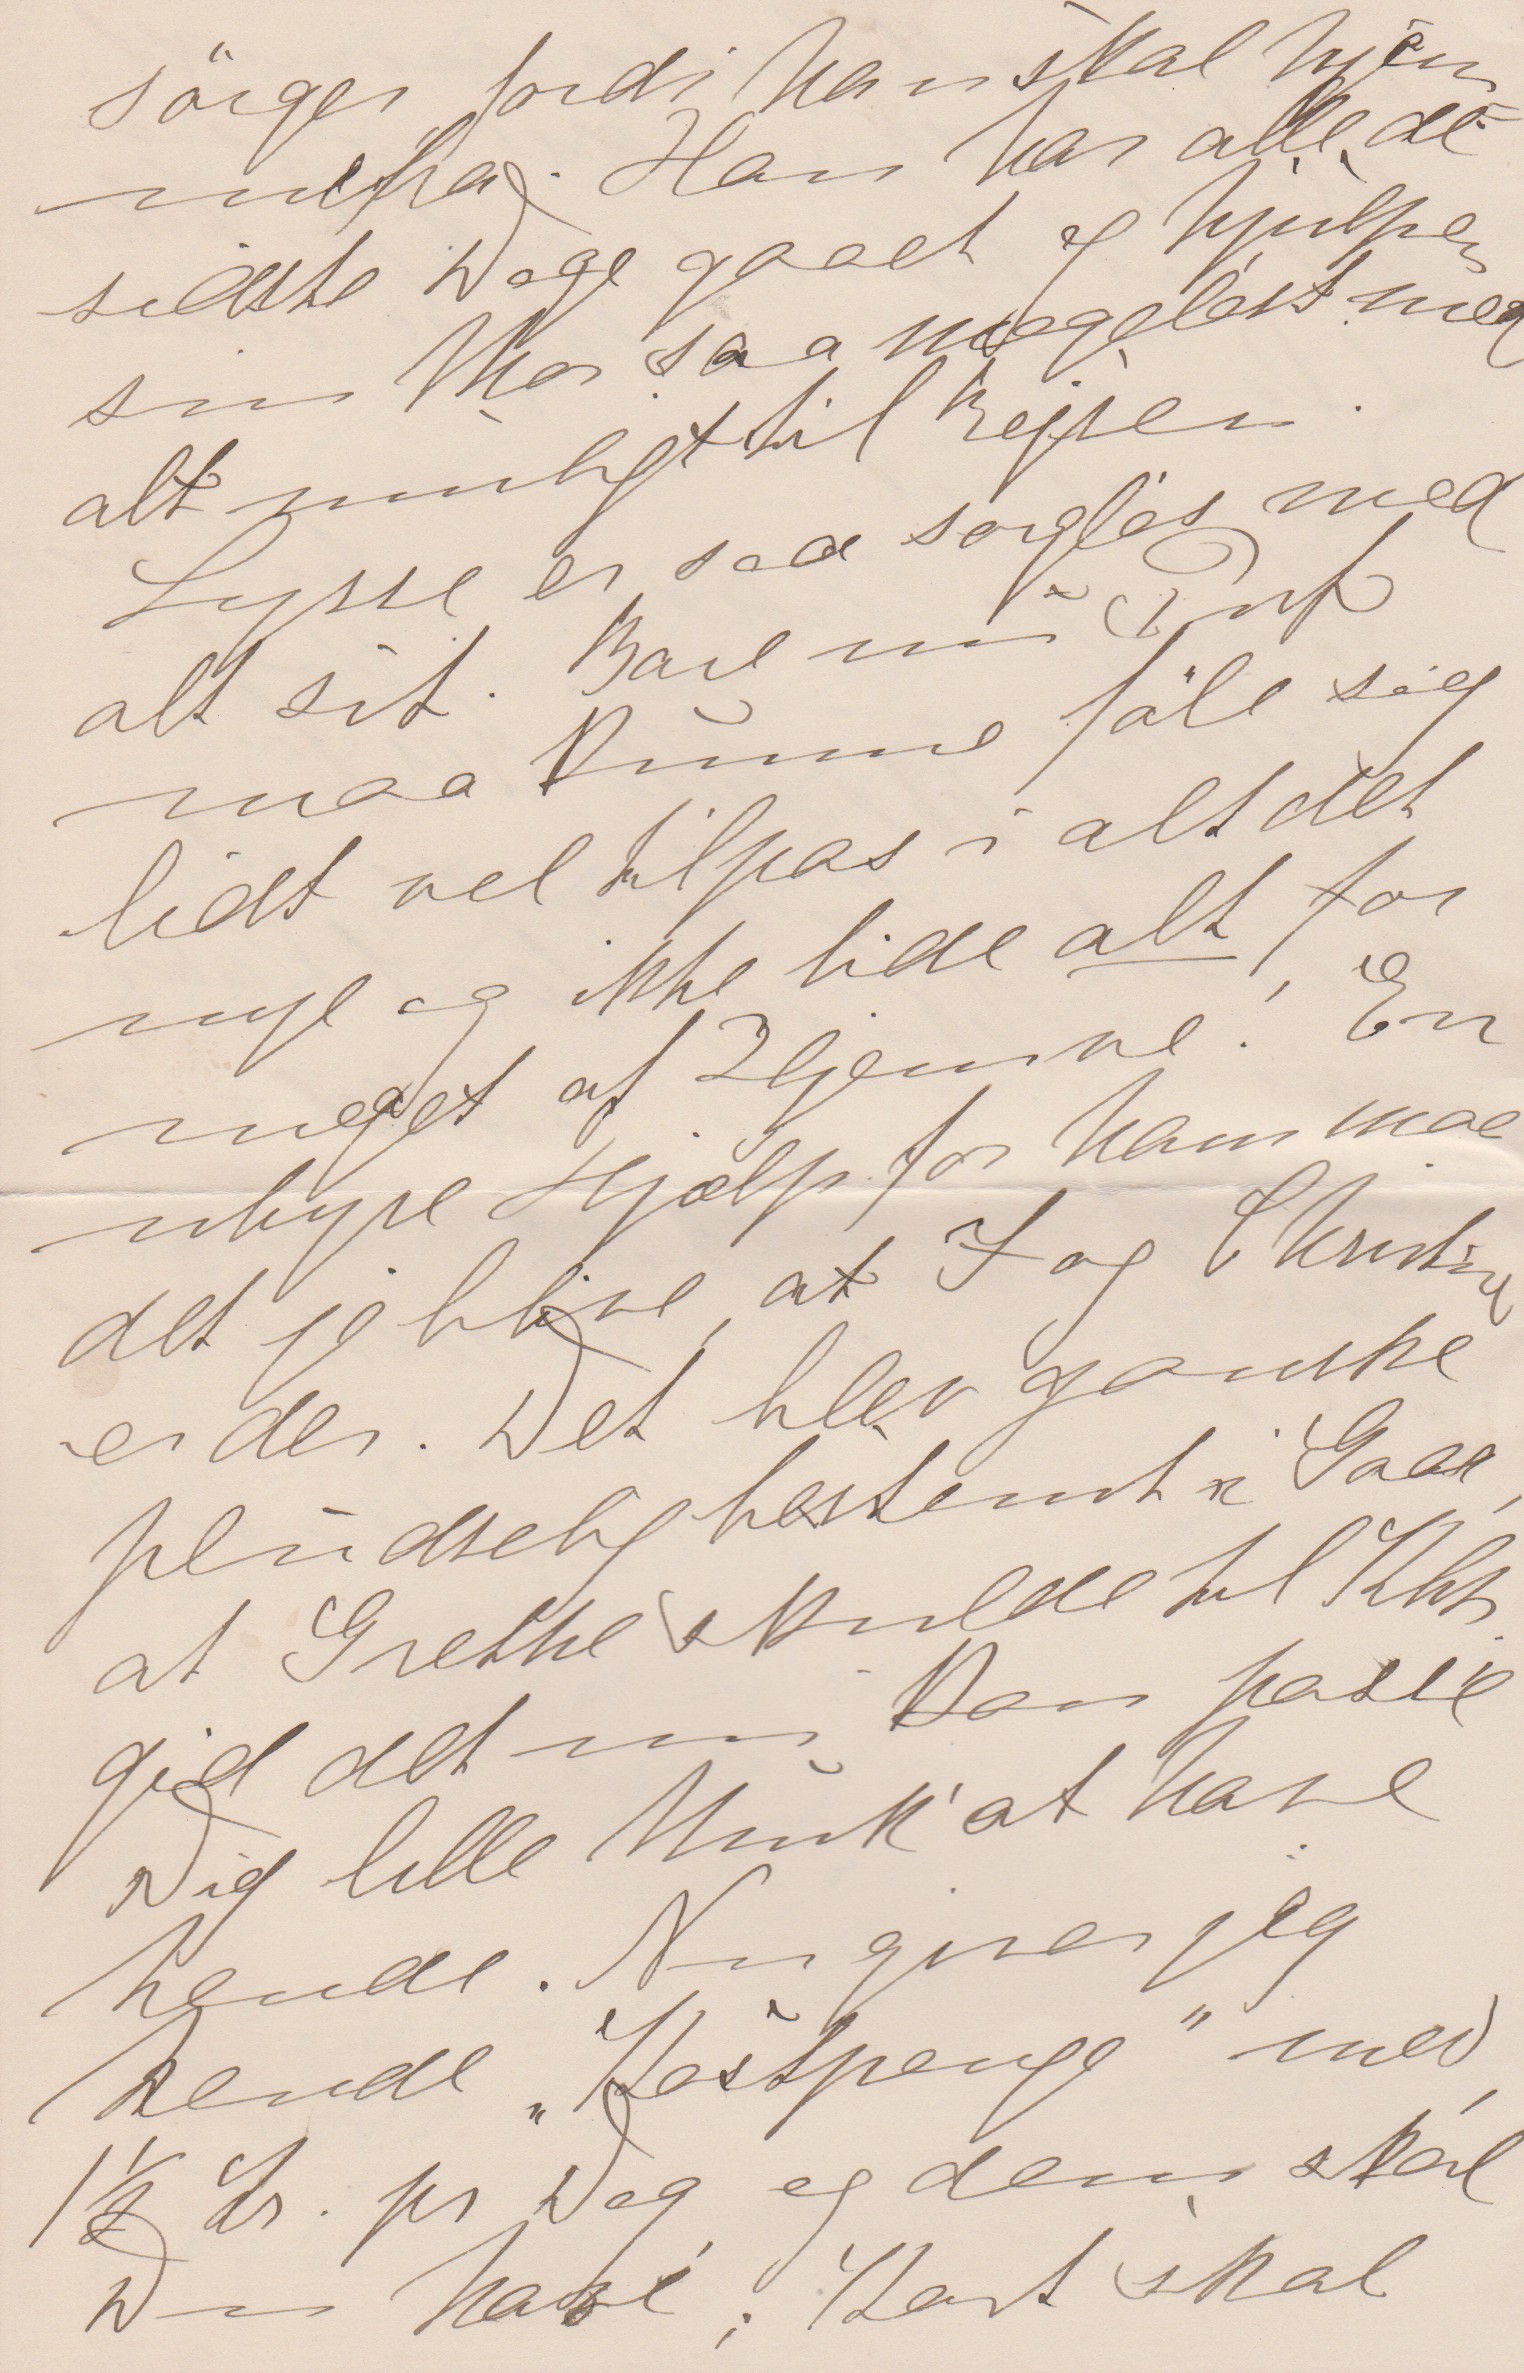 sörger fordi han skal hjem
nu herfra. Han har alle de
sidste Dage gaaet og hjulpen
sin Mor saa mageløst med
alt muligt til Rejsen.
Lysse er saa sorgløs med
alt sit. Bare nu Put
maa kunne føle sig
lidt vel tilpas i alt det
nye og ikke lide alt for
meget af Hjemve! En
uhyre Hjælp for ham maa
det jo blive, at I og Christine
er der. Det blev ganske
pludselig bestemt i Gaar,
at Grethe skulde til Kbh.
gid det nu kan passe
Dig lille Muk at have
hende. Nu giver jeg
hende „Kostpenge" med,
1½ Kr. pr Dag og dem skal
Du have; Kort skal